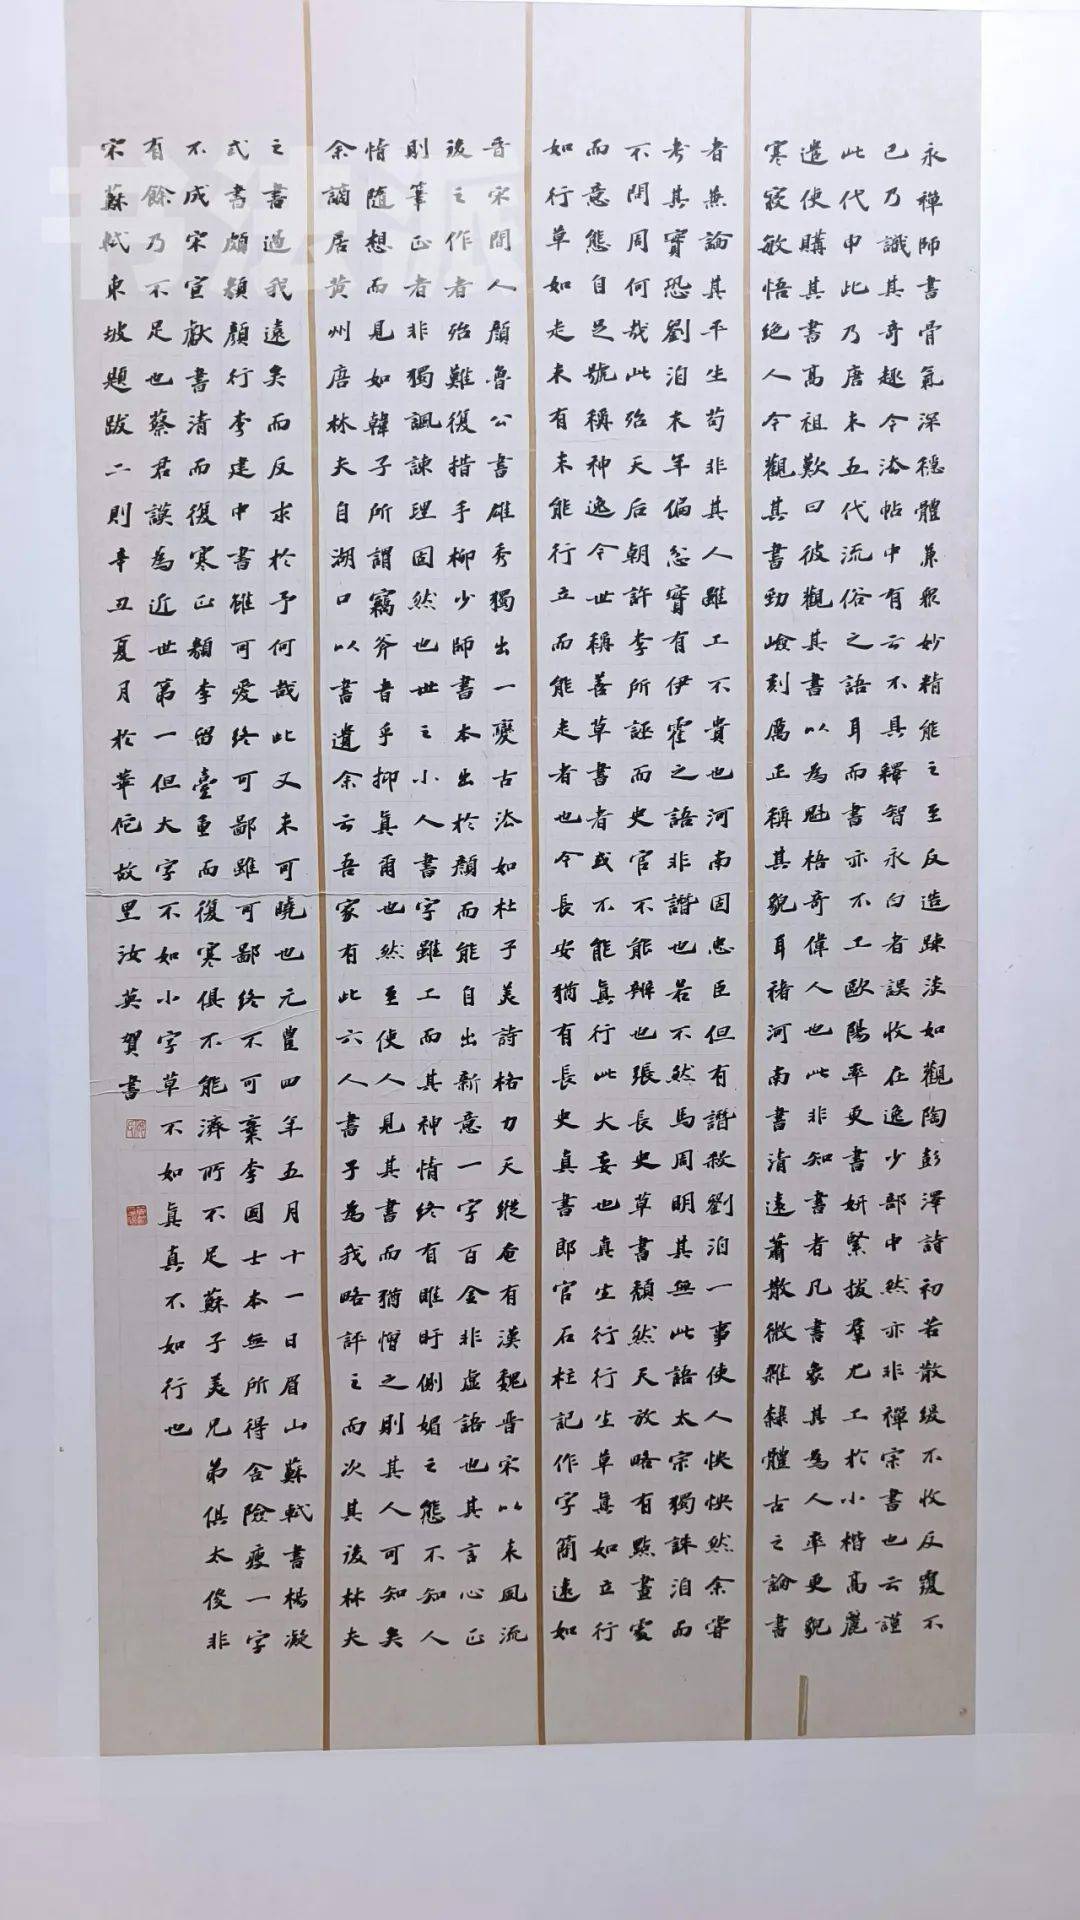 永禪師書骨氣深穩體兼眾妙精能之至反造疎淡如觀陶彭澤詩初若散緩不收反覆不
已乃識其奇趣今法帖中有云不具釋智永白者誤收在逸少部中然亦非禪宗書也云謹
此代申此乃唐末五代流俗之語耳而書亦不工歐陽率更書妍緊拔羣尤工於小楷高麗
遣使購其書高祖歎曰彼觀其書以為魁梧奇偉人也此非知書者凡書象其為人率更貌
寒寢敏悟絕人今觀其書勁嶮刻厲正稱其貌耳褚河南書清遠蕭散微雜隸體古之論書
者兼論其平生苟非其人雖工不貴也河南固忠臣但有譖殺劉洎一事使人怏怏然余嘗
考其實恐劉洎末年偏忿實有伊霍之語非譖也若不然馬周明其無此語太宗獨誅洎而
不問周何哉此殆天后朝許李所誣而史官不能辨也張長史草書頹然天放略有點畫處
而意態自足號稱神逸今世稱善草書者或不能真行此大妄也真生行行生草真如立行
如行草如走未有未能行立而能走者也今長安猶有長史真書郎官石柱記作字簡遠如
晉宋間人顏魯公書雄秀獨出一變古法如杜子美詩格力天縱奄有漢魏晉宋以來風流
後之作者殆難復措手柳少師書本出於顏而能自出新意一字百金非虛語也其言心正
則筆正者非獨諷諫理固然也世之小人書字雖工而其神情終有睢盱側媚之態不知人
情隨想而見如韓子所謂竊斧者乎抑真爾也然至使人見其書而猶憎之則其人可知矣
余謫居黃州唐林夫自湖口以書遺余云吾家有此六人書子為我略評之而次其後林夫
之書過我遠矣而反求於予何哉此又未可曉也元豐四年五月十一日眉山蘇軾書楊凝
式書頗類顏行李建中書雖可愛終可鄙雖可鄙終不可棄李國士本無所得舍險瘦一字
不成宋宣獻書清而復寒正類李留臺重而復寒俱不能濟所不足蘇子美兄弟俱太俊非
有餘乃不足也蔡君謨為近世第一但大字不如小字草不如真真不如行也
宋蘇軾東坡題跋二則辛丑夏月於華佗故里汝英賀書
书法派